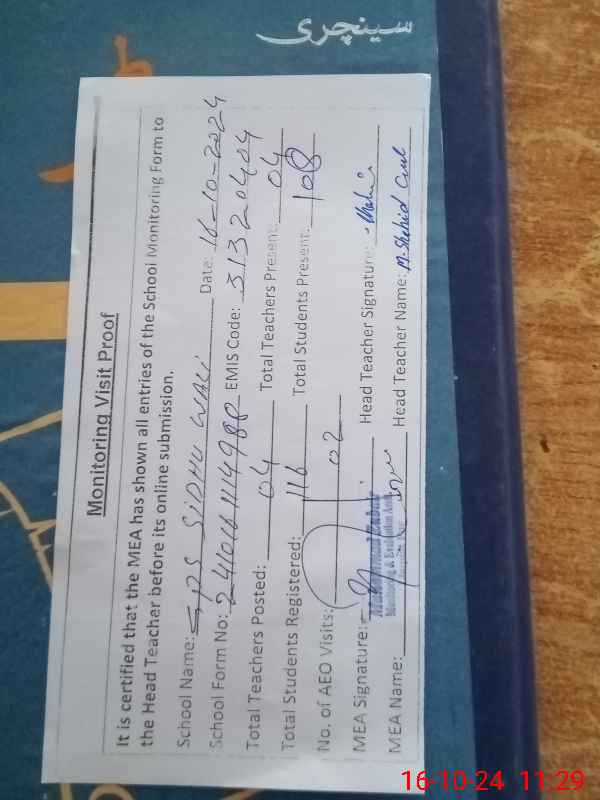 سینچری
Monitoring Visit Proof
It is certified that the MEA has shown all entries of the School Monitoring Form to
the Head Teacher before its online submission.
School Name: GPS SIDHU WALI Date: 16-10-2024
School Form No: 241016114988 EMIS Code: 31320404
Total Teachers Posted: 04 Total Teachers Present: 04
Total Students Registered: 116 Total Students Present: 108
No. of AEO Visits: 02
MEA Signature: Head Teacher Signature:
Monitoring & Evaluation
MEA Name: Head Teacher Name: M. Shahid
16-10-24 11:29